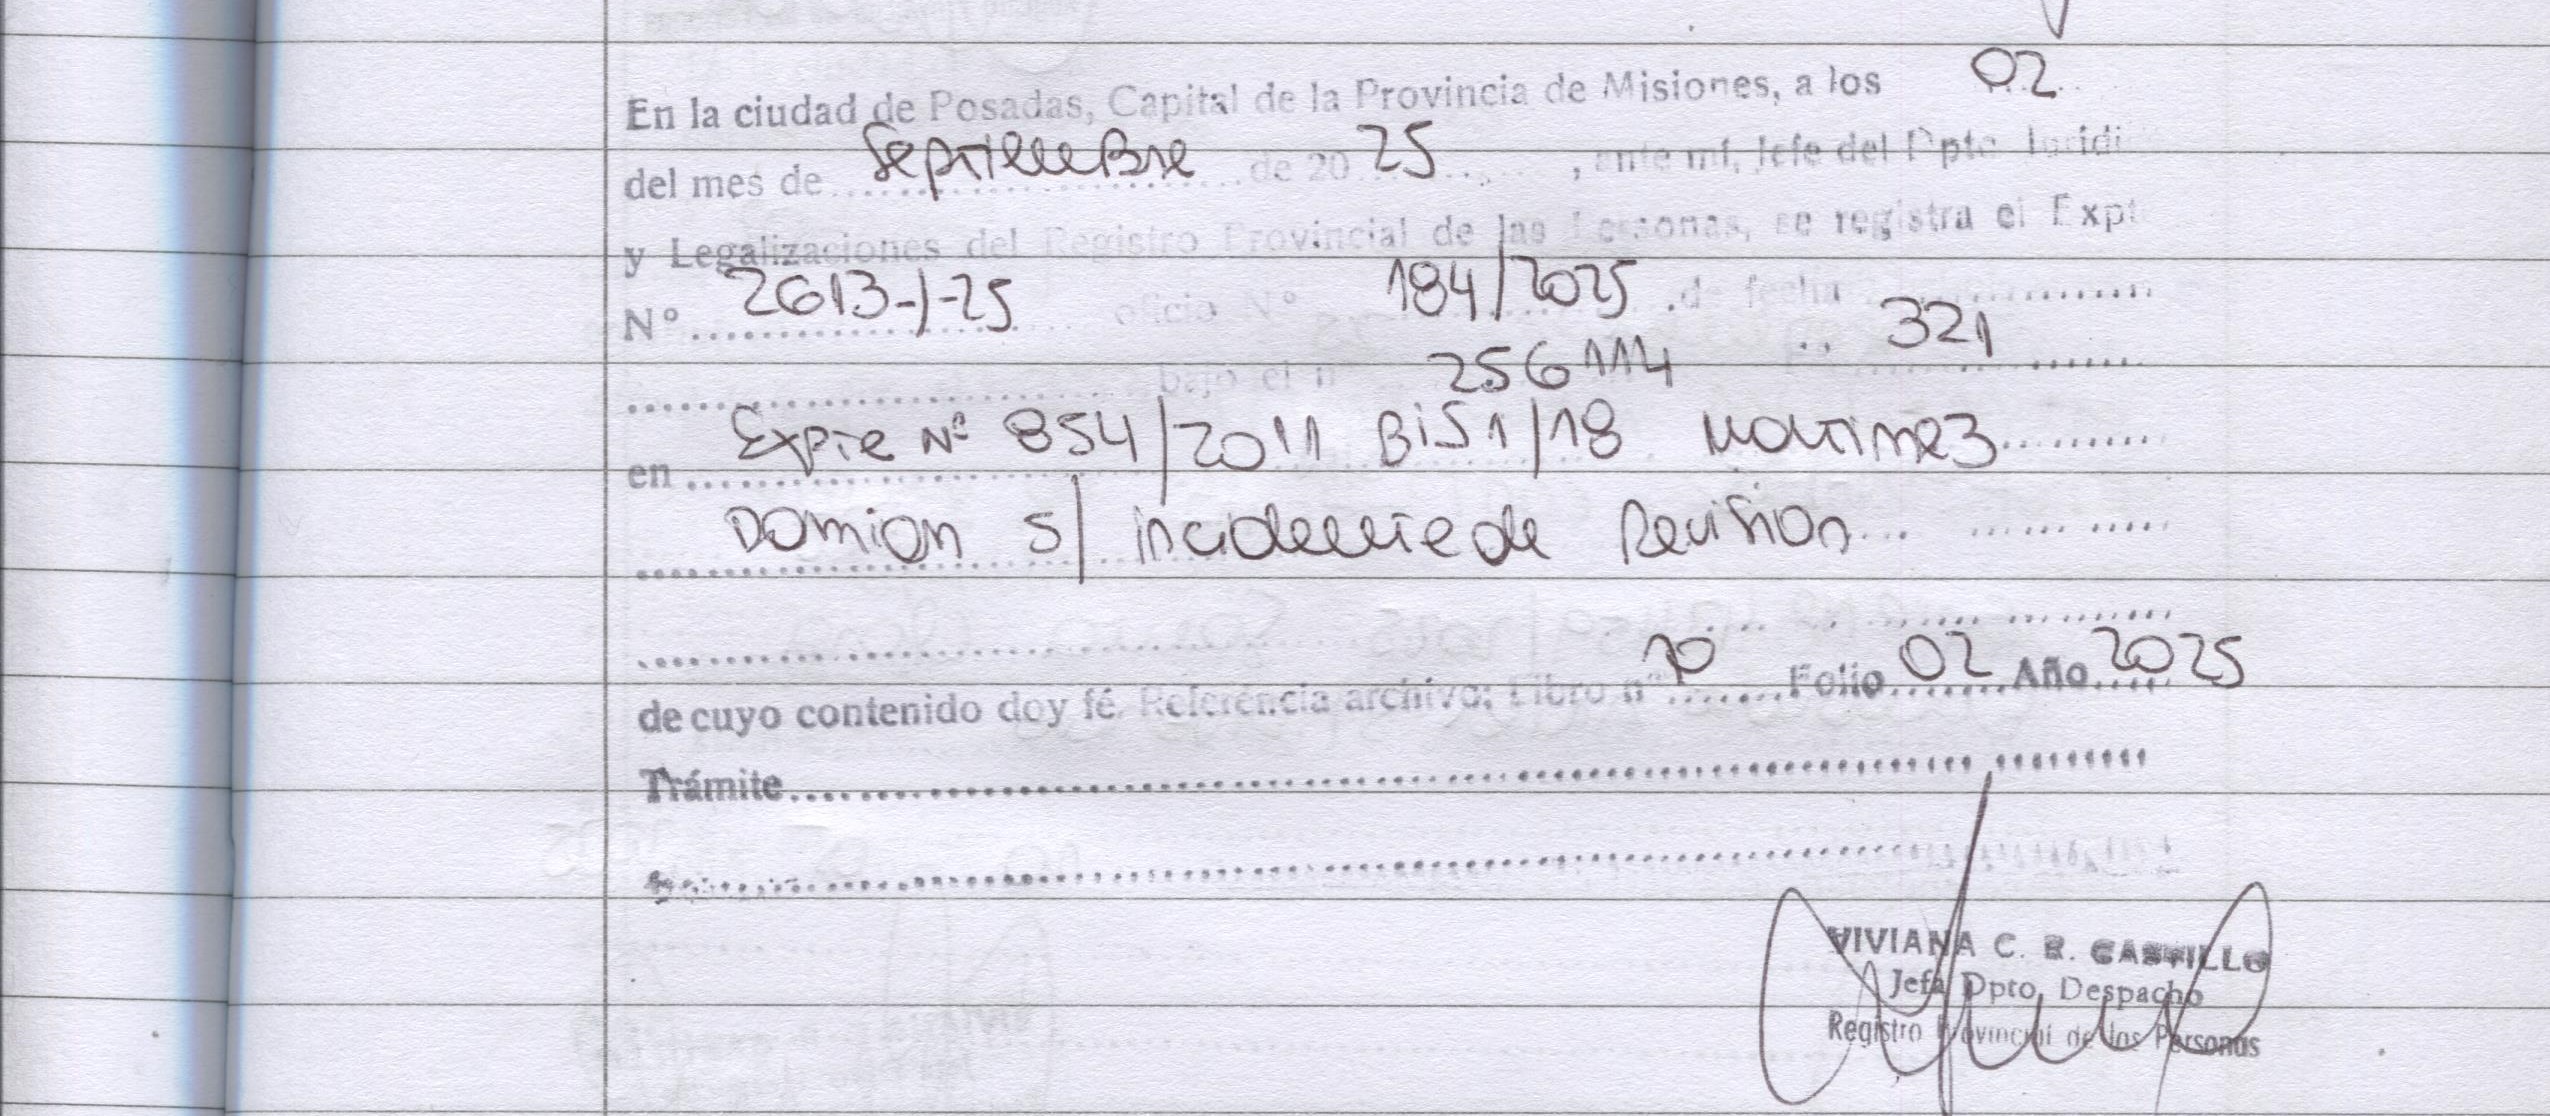 En la ciudad de Posadas, Capital de la Provincia de Misiones, a los 02
del mes de Septiembre de 20 25, ante mí, Jefe del Dpto Jurídi
y Legalizaciones del Registro Provincial de las Personas, se registra el Expt
Nº 2613-/-25 oficio Nº 184/2025 de fecha
bajo el nº 256114 321
en Expte Nº 854/2011 Bis 1/18 Martinez
Damian s/ incidente de Revision
de cuyo contenido doy fé. Referencia archivo: Libro nº 10 Folio 02 Año 2025
Trámite
VIVIANA C. R. CASTILLO
Jefa Dpto Despacho
Registro Provincial de las Personas